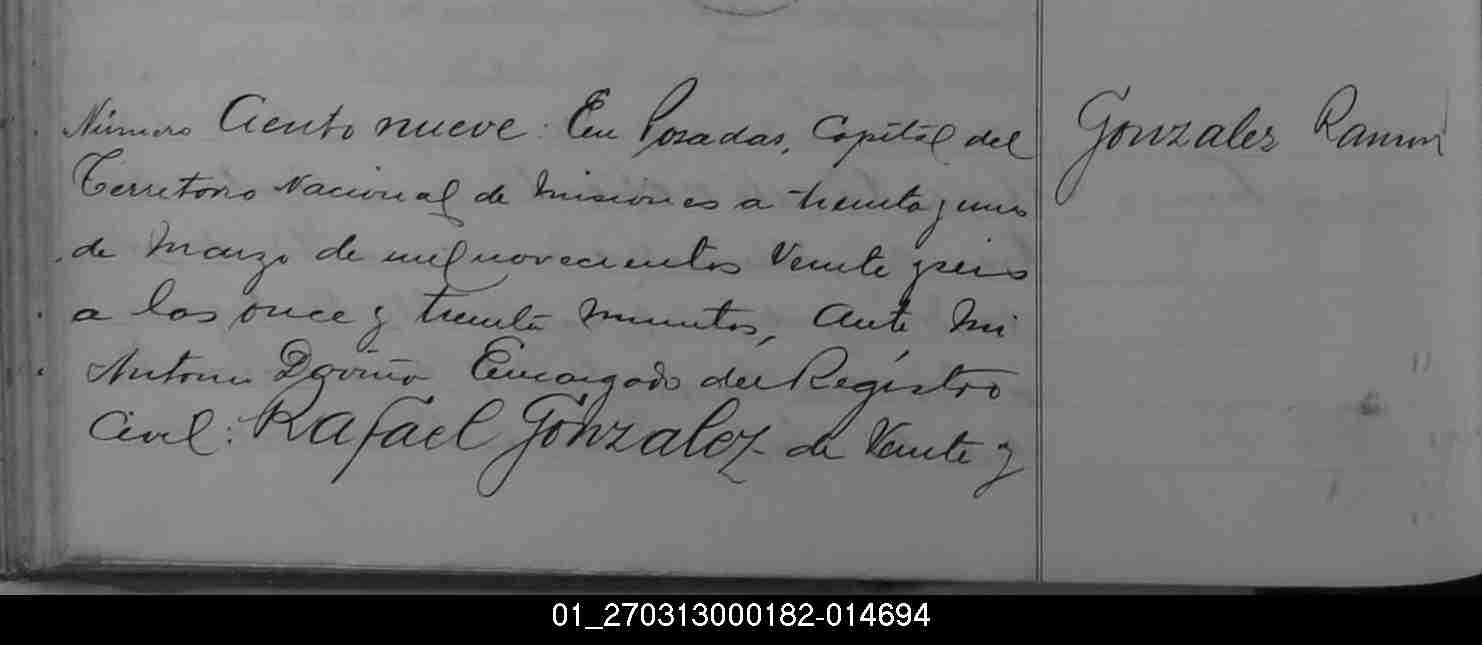 Número Ciento nueve: En Posadas, Capital del
Territorio Nacional de Misiones a treinta y uno
de Marzo de mil novecientos Veinte y seis
a las once y treinta minutos, Ante mi
Antonio Encargado del Registro
Civil: Rafael Gonzalez de Veinte y
Gonzales Ramon
01_270313000182-014694